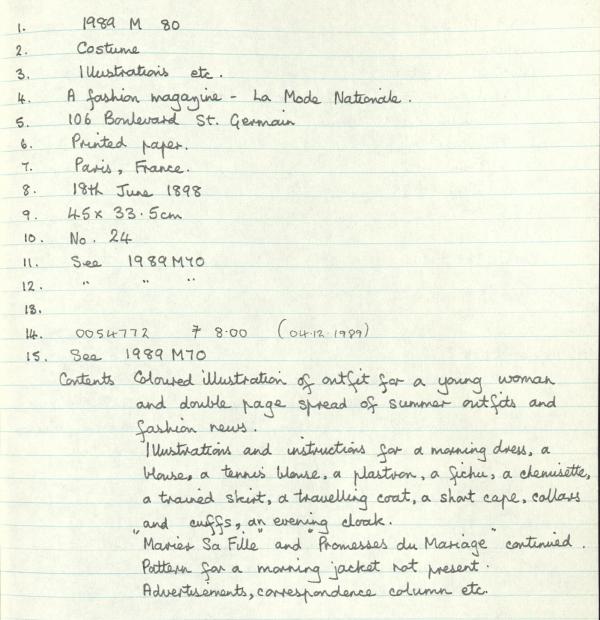 1. 1989 M 80
2. Costume
3. Illustrations etc.
4. A fashion magazine - La Mode Nationale.
5. 106 Boulevard St. Germain
6. Printed paper.
7. Paris, France.
8. 18th June 1898
9. 45 x 33.5cm
10. No. 24
11. See 1989 M70
12. " " "
13.
14. 0054772 7 8.00 (04.12.1989)
15. See 1989 M70
Contents Coloured illustration of outfit for a young woman
and double page spread of summer outfits and
fashion news.
Illustrations and instructions for a morning dress, a
blouse, a tennis blouse, a plastron, a fichu, a chemisette,
a trained skirt, a travelling coat, a short cape, collars
and cuffs, an evening cloak.
"Marier Sa Fille" and "Promesses du Mariage" continued.
Pattern for a morning jacket not present.
Advertisements, correspondence column etc.